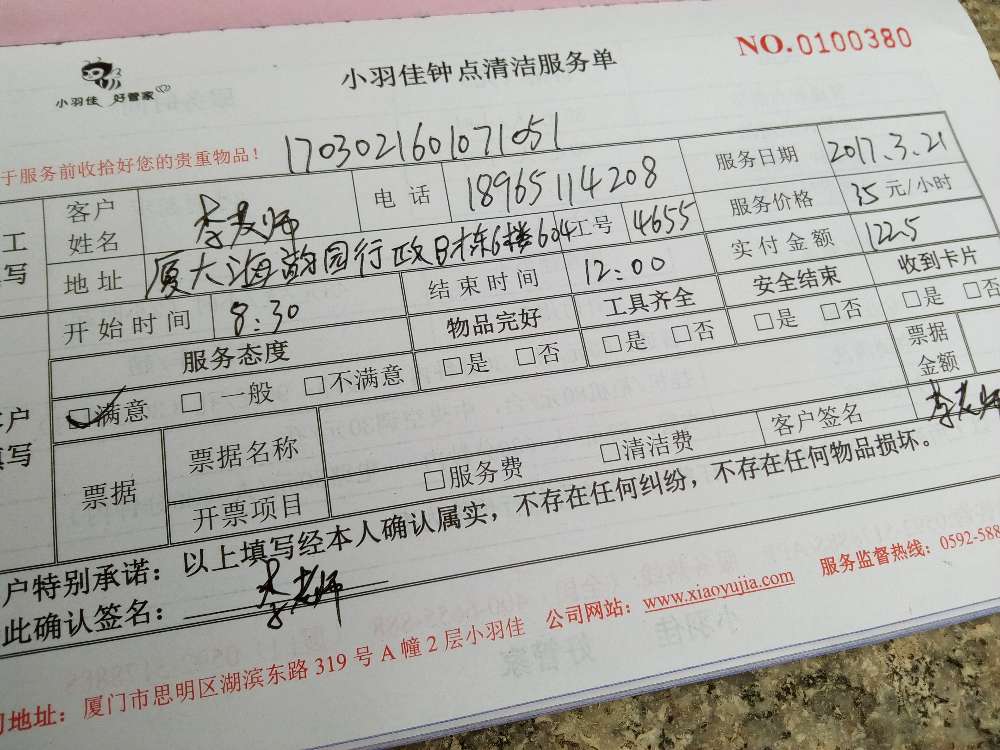 小羽佳 好管家
小羽佳钟点清洁服务单
NO.0100380
于服务前收拾好您的贵重物品！
1703021601071051
工
写
客户姓名
李老师
电话
18965114208
服务日期
2017.3.21
地址
厦大海韵园行政B栋6楼604
工号
4655
服务价格
35元/小时
开始时间
8:30
结束时间
12:00
实付金额
122.5
服务态度
物品完好
工具齐全
安全结束
收到卡片
客户
填写
☑满意 □一般 □不满意
□是 □否
□是 □否
□是 □否
□是 □否
票据
票据名称
票据金额
开票项目
□服务费 □清洁费
客户签名
李老师
户特别承诺：以上填写经本人确认属实，不存在任何纠纷，不存在任何物品损坏。
此确认签名：李老师
地址：厦门市思明区湖滨东路319号A幢2层小羽佳 公司网站：www.xiaoyujia.com 服务监督热线：0592-588